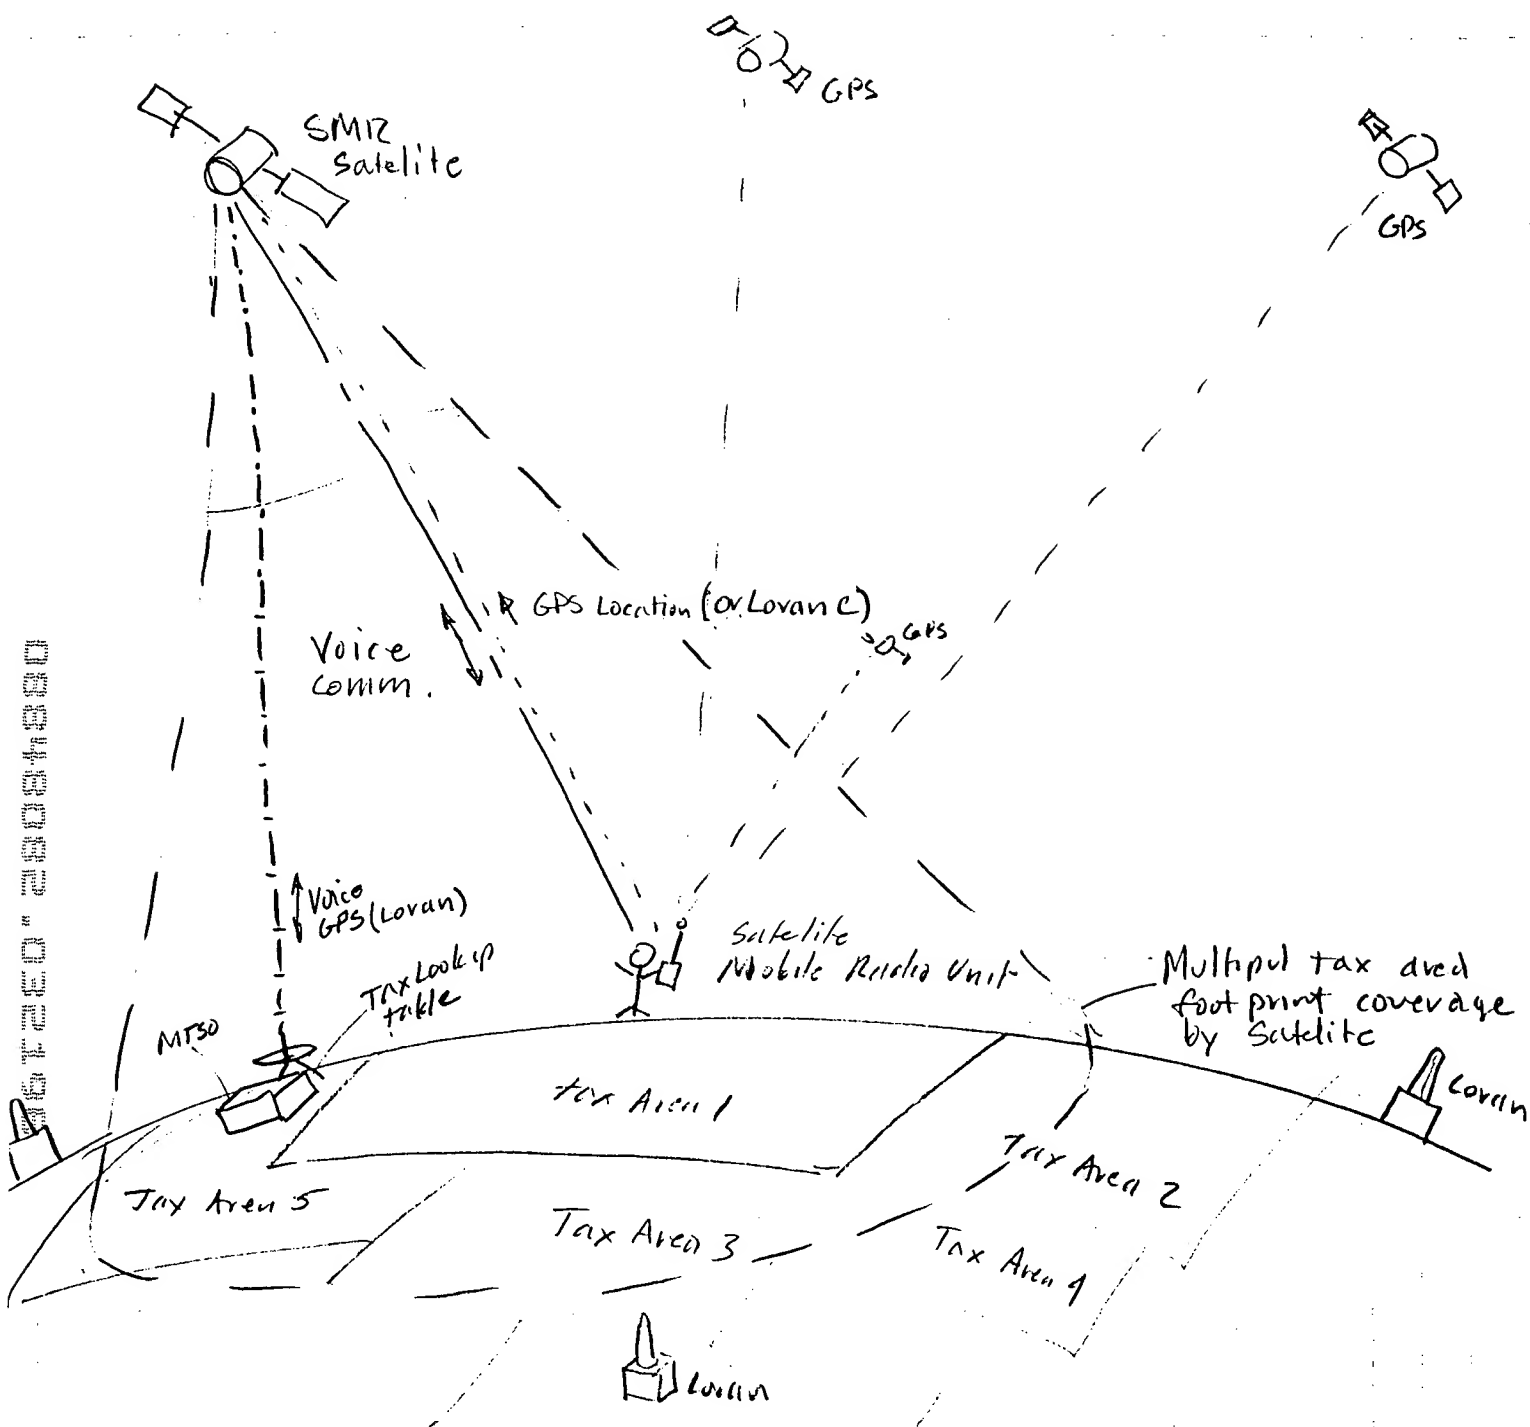 GPS
SMR
Satelite
GPS
GPS Location (or Loran C)
GPS
Voice
Comm.
Voice
GPS (Loran)
Tax Lookup
table
MTSO
Satelite
Mobile Radio Unit
Multipul tax area
foot print coverage
by Satelite
Loran
tax Area 1
Tax Area 2
Tax Area 5
Tax Area 3
Tax Area 4
Loran